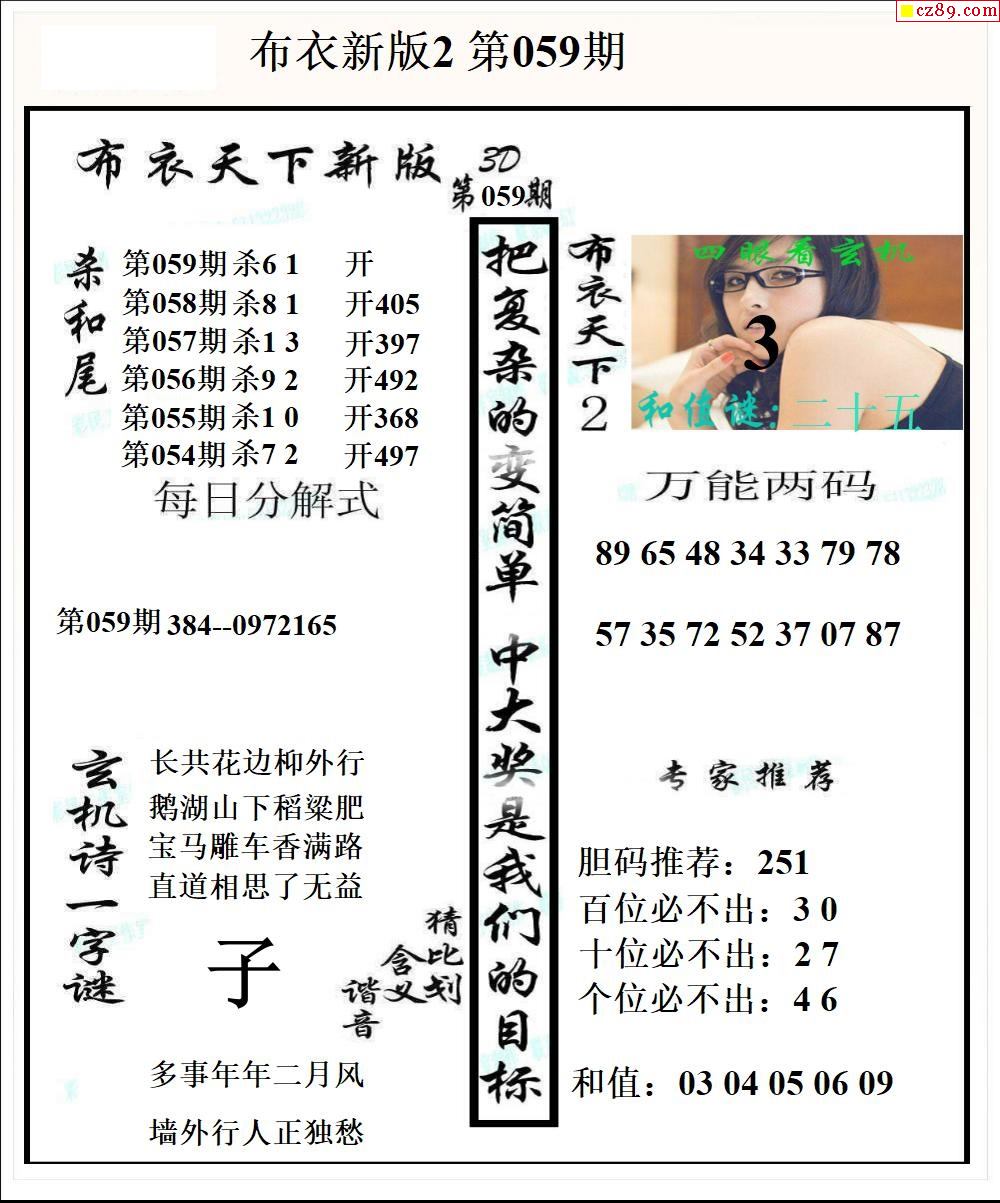 cz89.com
布衣新版2 第059期
布衣天下新版 3D
第059期
杀和尾
第059期 杀6 1 开
第058期 杀8 1 开405
第057期 杀1 3 开397
第056期 杀9 2 开492
第055期 杀1 0 开368
第054期 杀7 2 开497
每日分解式
第059期 384--0972165
玄机诗
长共花边柳外行
鹅湖山下稻粱肥
宝马雕车香满路
直道相思了无益
一字谜
子
猜比划
含义
谐音
多事年年二月风
墙外行人正独愁
把复杂的变简单 中大奖是我们的目标
布衣天下2
四眼看玄机
3
和值谜: 二十五
万能两码
89 65 48 34 33 79 78
57 35 72 52 37 07 87
专家推荐
胆码推荐：251
百位必不出：3 0
十位必不出：2 7
个位必不出：4 6
和值：03 04 05 06 09